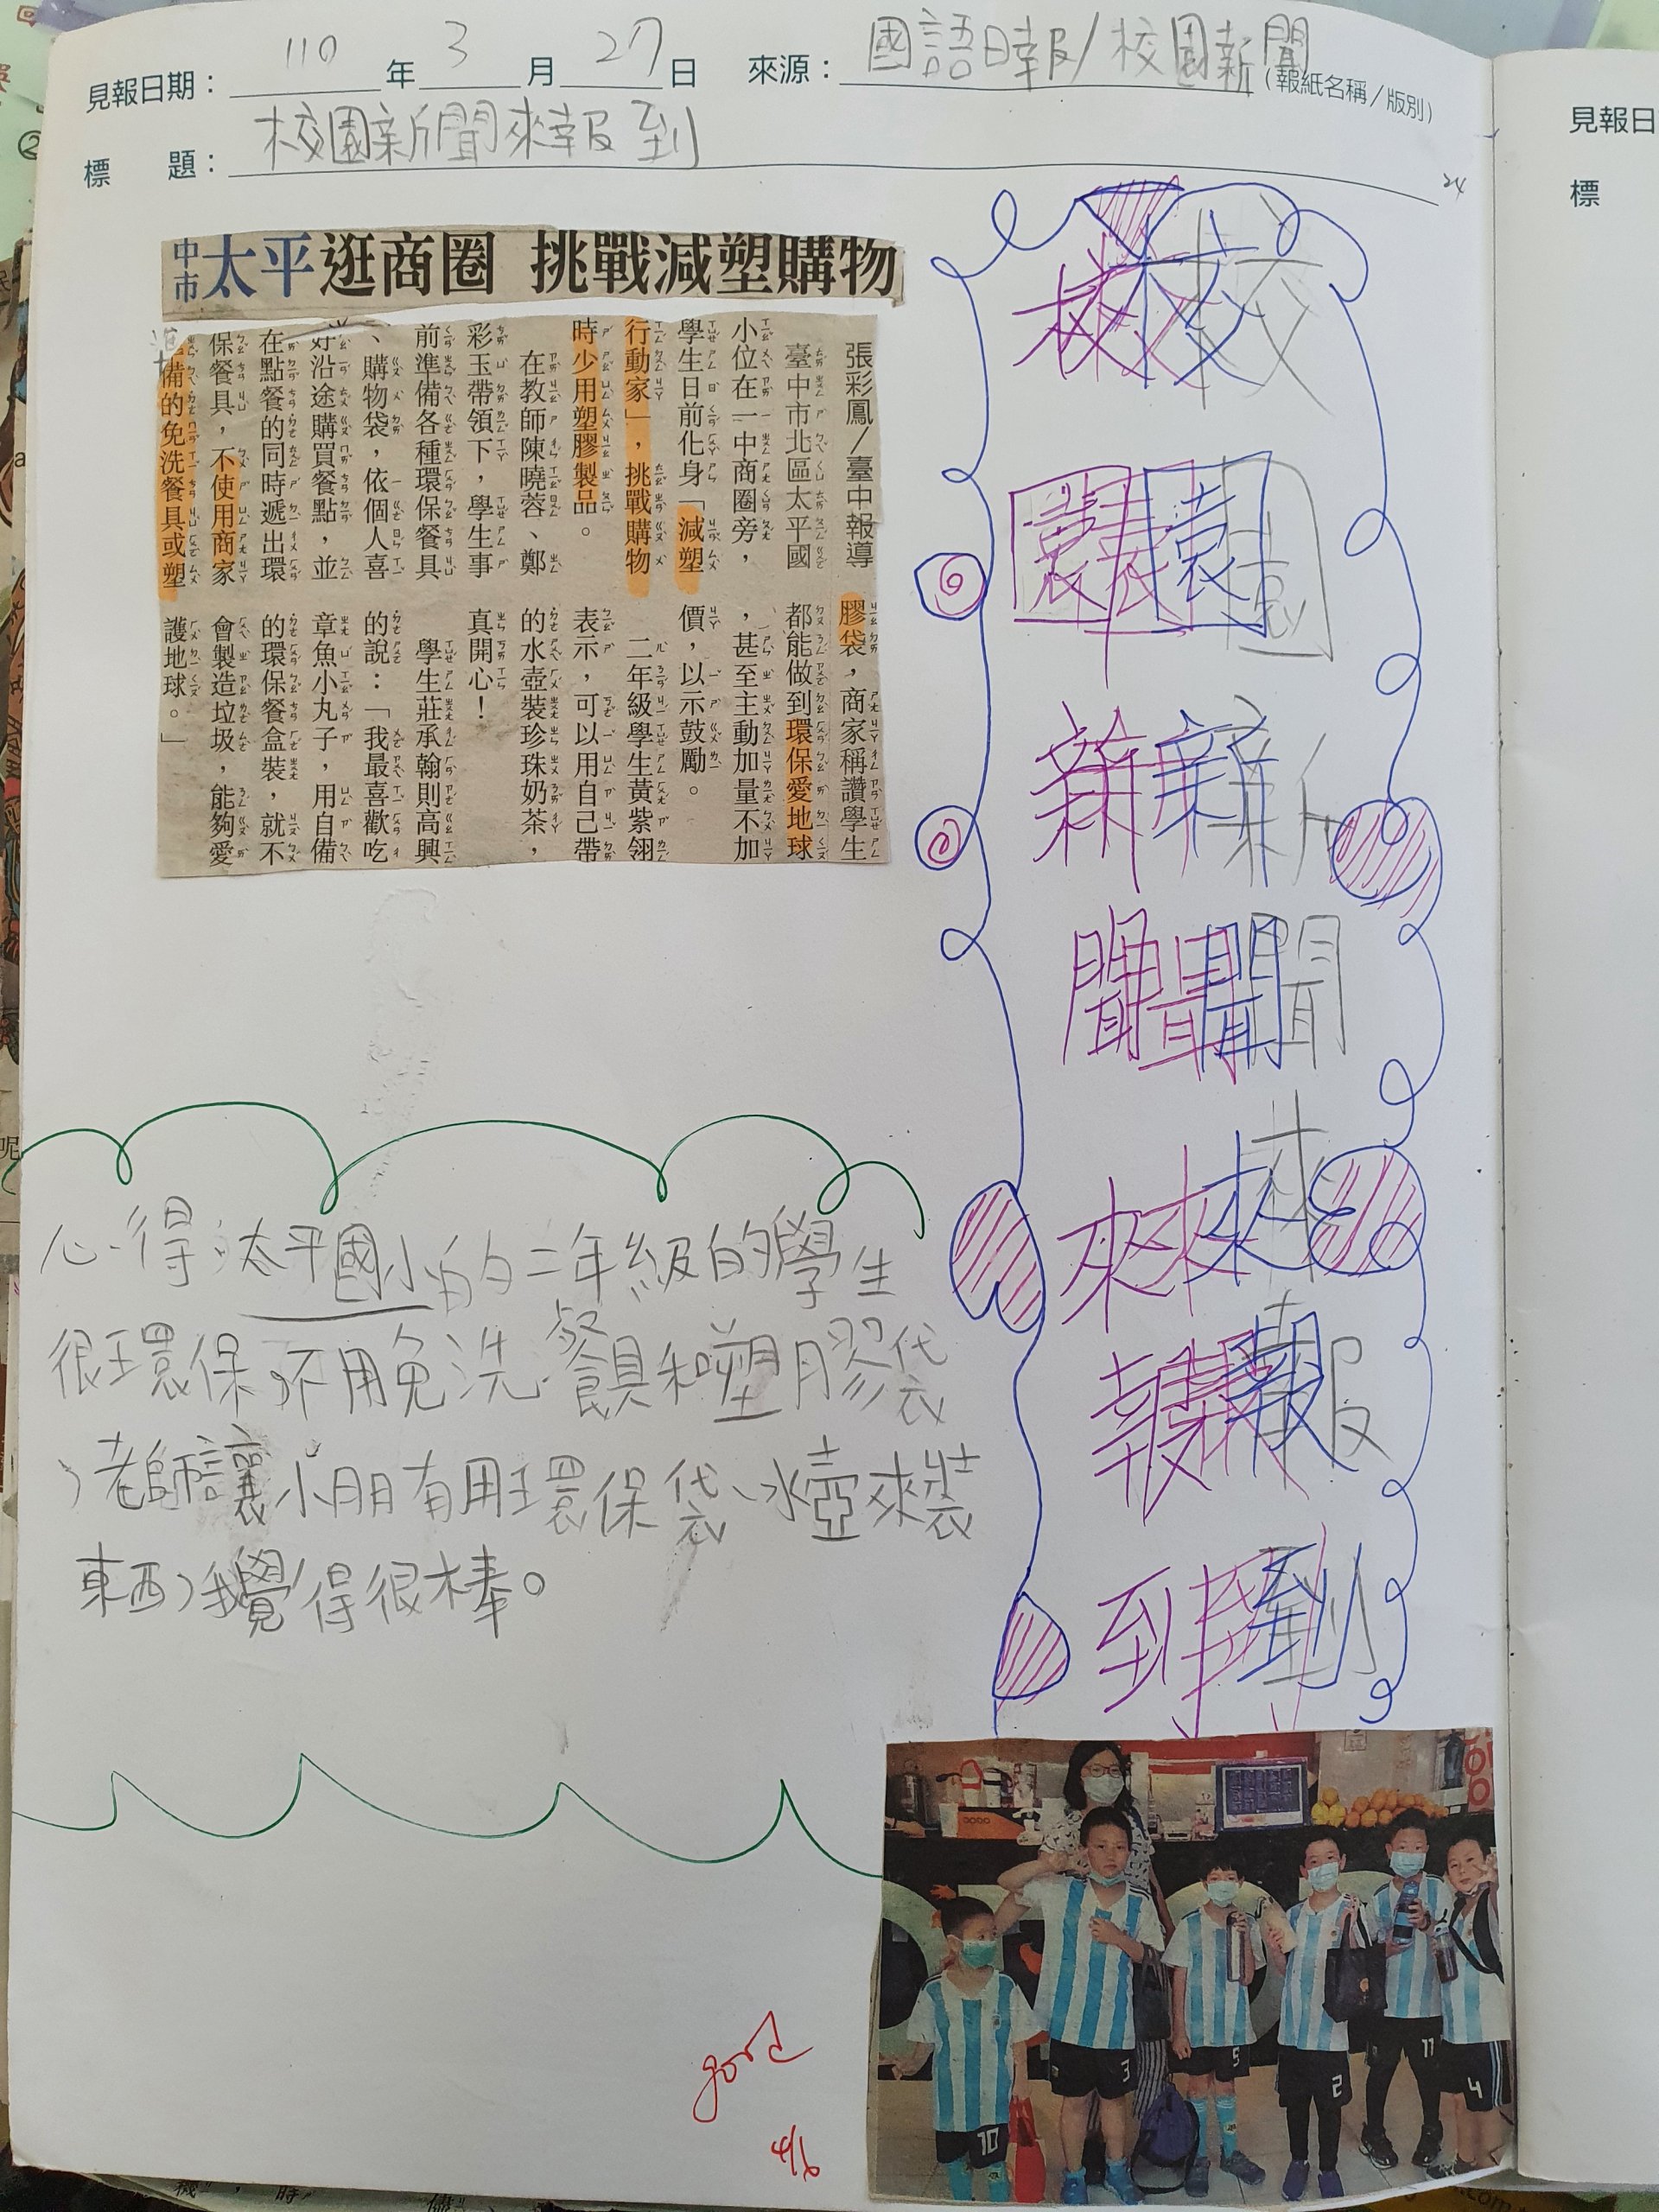 見報日期： 110 年 3 月 27 日 來源： 國語日報/校園新聞 (報紙名稱/版別)
標 題： 校園新聞來報到
24
中市 太平逛商圈 挑戰減塑購物
張彩鳳/臺中報導
臺中市北區太平國
小位在一中商圈旁，
學生日前化身「減塑
行動家」，挑戰購物
時少用塑膠製品。
在教師陳曉蓉、鄭
彩玉帶領下，學生事
前準備各種環保餐具
、購物袋，依個人喜
好沿途購買餐點，並
在點餐的同時遞出環
保餐具，不使用商家
準備的免洗餐具或塑
膠袋，商家稱讚學生
都能做到環保愛地球
，甚至主動加量不加
價，以示鼓勵。
二年級學生黃紫翎
表示，可以用自己帶
的水壺裝珍珠奶茶，
真開心！
學生莊承翰則高興
的說：「我最喜歡吃
章魚小丸子，用自備
的環保餐盒裝，就不
會製造垃圾，能夠愛
護地球。」
校
園
新
聞
來
報
到
心得：太平國小的二年級的學生
很環保，不用免洗餐具和塑膠袋
，老師讓小朋有用環保袋、水壺來裝
東西，我覺得很棒。
good
4/6
3
5
2
11
4
10
見報日
標